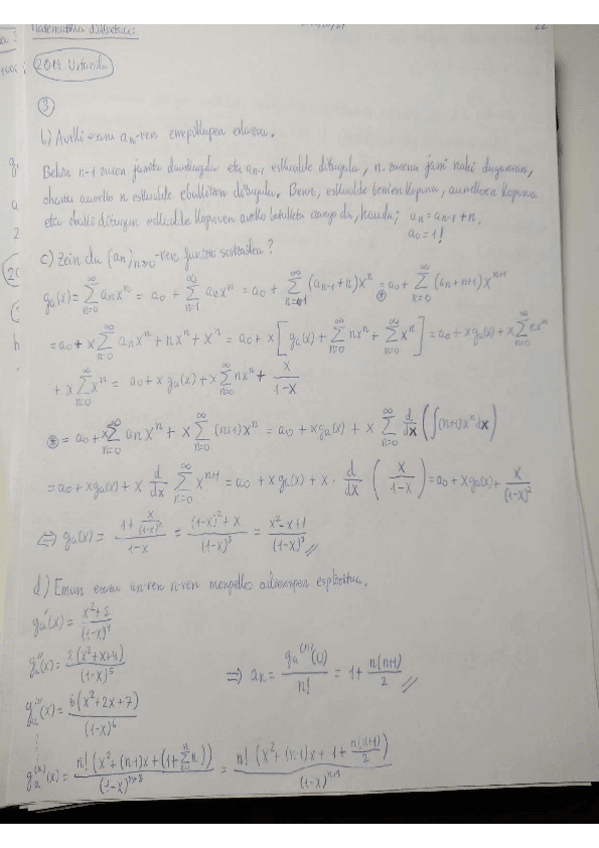 Matematika diskretua:
2019 Urtarrila
3
b) Aurkitu an-ren errepikapen erlazioa.
Behin n-1 zuzen jarrita dauzkagula eta an-1 eskualde ditugula, n. zuzena jarri nahi dugunean,
n eskualde ditugu. Beraz, eskualde berrien kopurua, aurrekoen kopurua
eta ditugun eskualde kopuruen izango da, hau da; an = an-1 + n.
a0 = 1!
c) Zein da (an)n≥0-ren funtzio sortzailea?
ga(x) = ∑n=0∞ an x^n = a0 + ∑n=1∞ an x^n = a0 + ∑n=1∞ (an-1 + n) x^n = a0 + ∑n=0∞ (an + n+1) x^n+1
= a0 + x ∑n=0∞ an x^n + n x^n + x^n = a0 + x [ga(x) + ∑n=0∞ n x^n + ∑n=0∞ x^n] = a0 + x ga(x) + x ∑n=0∞ n x^n
+ x ∑n=0∞ x^n = a0 + x ga(x) + x ∑n=0∞ n x^n + x/(1-x)
⊛ = a0 + x ∑n=0∞ an x^n + x ∑n=0∞ (n+1) x^n = a0 + x ga(x) + x ∑n=0∞ d/dx (∫(n+1) x^n dx)
= a0 + x ga(x) + x d/dx ∑n=0∞ x^n+1 = a0 + x ga(x) + x · d/dx (x/(1-x)) = a0 + x ga(x) + x/(1-x)^2
⇔ ga(x) = (1 + x/(1-x)^2)/(1-x) = ((1-x)^2 + x)/(1-x)^3 = (x^2 - x + 1)/(1-x)^3 //
d) Eman ezazu an-ren n-ren menpeko adierazpen esplizitua.
ga'(x) = (x^2 + 2)/(1-x)^4
ga''(x) = 2(x^2 + x + 4)/(1-x)^5
⇒ an = ga^(n)(0)/n! = 1 + n(n+1)/2 //
ga'''(x) = 6(x^2 + 2x + 7)/(1-x)^6
ga^(n)(x) = n! (x^2 + (n-1)x + (1 + ∑ n))/(1-x)^n+3 = n! (x^2 + (n-1)x + 1 + n(n+1)/2)/(1-x)^n+3